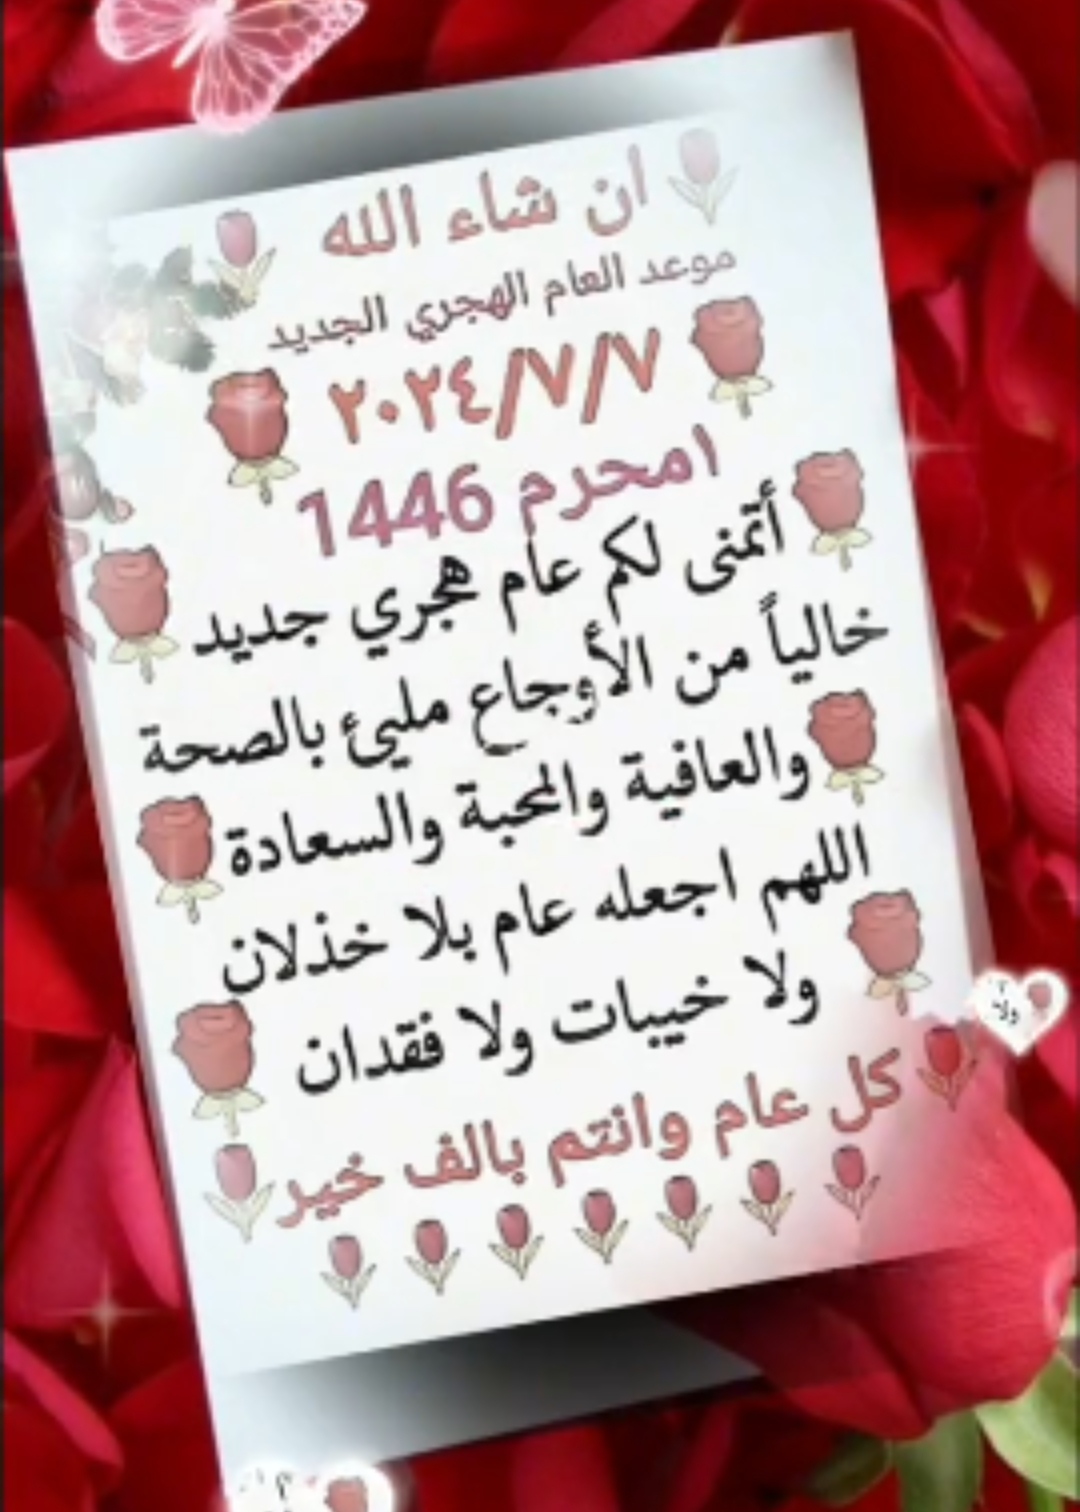 ان شاء الله
موعد العام الهجري الجديد
٢٠٢٤/٧/٧
١محرم 1446
أتمنى لكم عام هجري جديد
خالياً من الأوجاع مليئ بالصحة
والعافية والمحبة والسعادة
اللهم اجعله عام بلا خذلان
ولا خيبات ولا فقدان
كل عام وانتم بالف خير
ولا